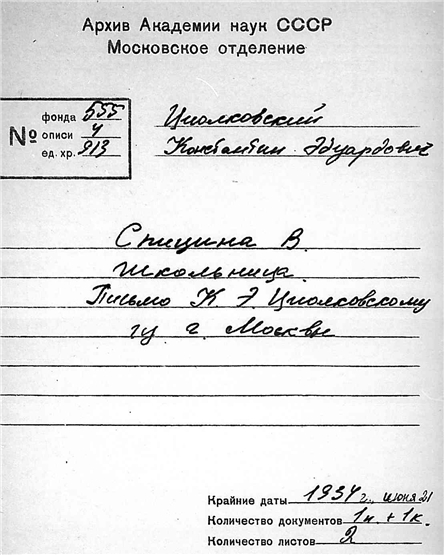 Архив Академии наук СССР
Московское отделение
№
фонда 555
описи 4
ед. хр. 913
Циолковский
Константин Эдуардович
Спицина В.
школьница.
Письмо К Э Циолковскому
из г. Москвы
Крайние даты 1934 г., июня 21
Количество документов 1н + 1к.
Количество листов 2